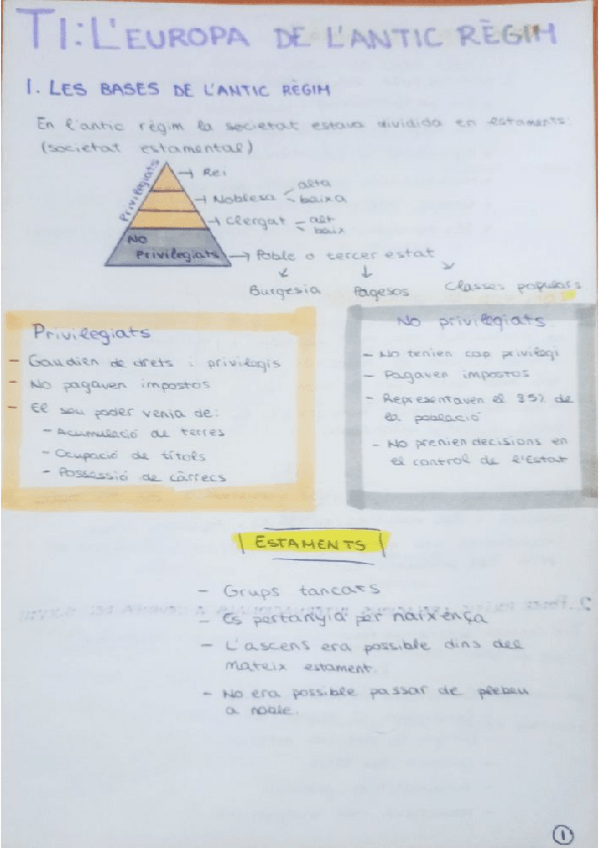 T1: L'EUROPA DE L'ANTIC RÈGIM
1. LES BASES DE L'ANTIC RÈGIM
En l'antic règim la societat estava dividida en estaments
(societat estamental)
Privilegiats
→ Rei
→ Noblesa alta
baixa
→ Clergat alt
baix
No
Privilegiats → Poble o tercer estat
Burgesia Pagesos Classes populars
Privilegiats
- Gaudien de drets i privilegis
- No pagaven impostos
- El seu poder venia de:
- Acumulació de terres
- Ocupació de títols
- Possessió de càrrecs
No privilegiats
- No tenien cap privilegi
- Pagaven impostos
- Representaven el de
la població
- No prenien decisions en
el control de l'Estat
ESTAMENTS
- Grups tancats
- Es pertanyia per naixença
- L'ascens era possible dins del
mateix estament.
- No era possible passar de plebeu
a noble.
1